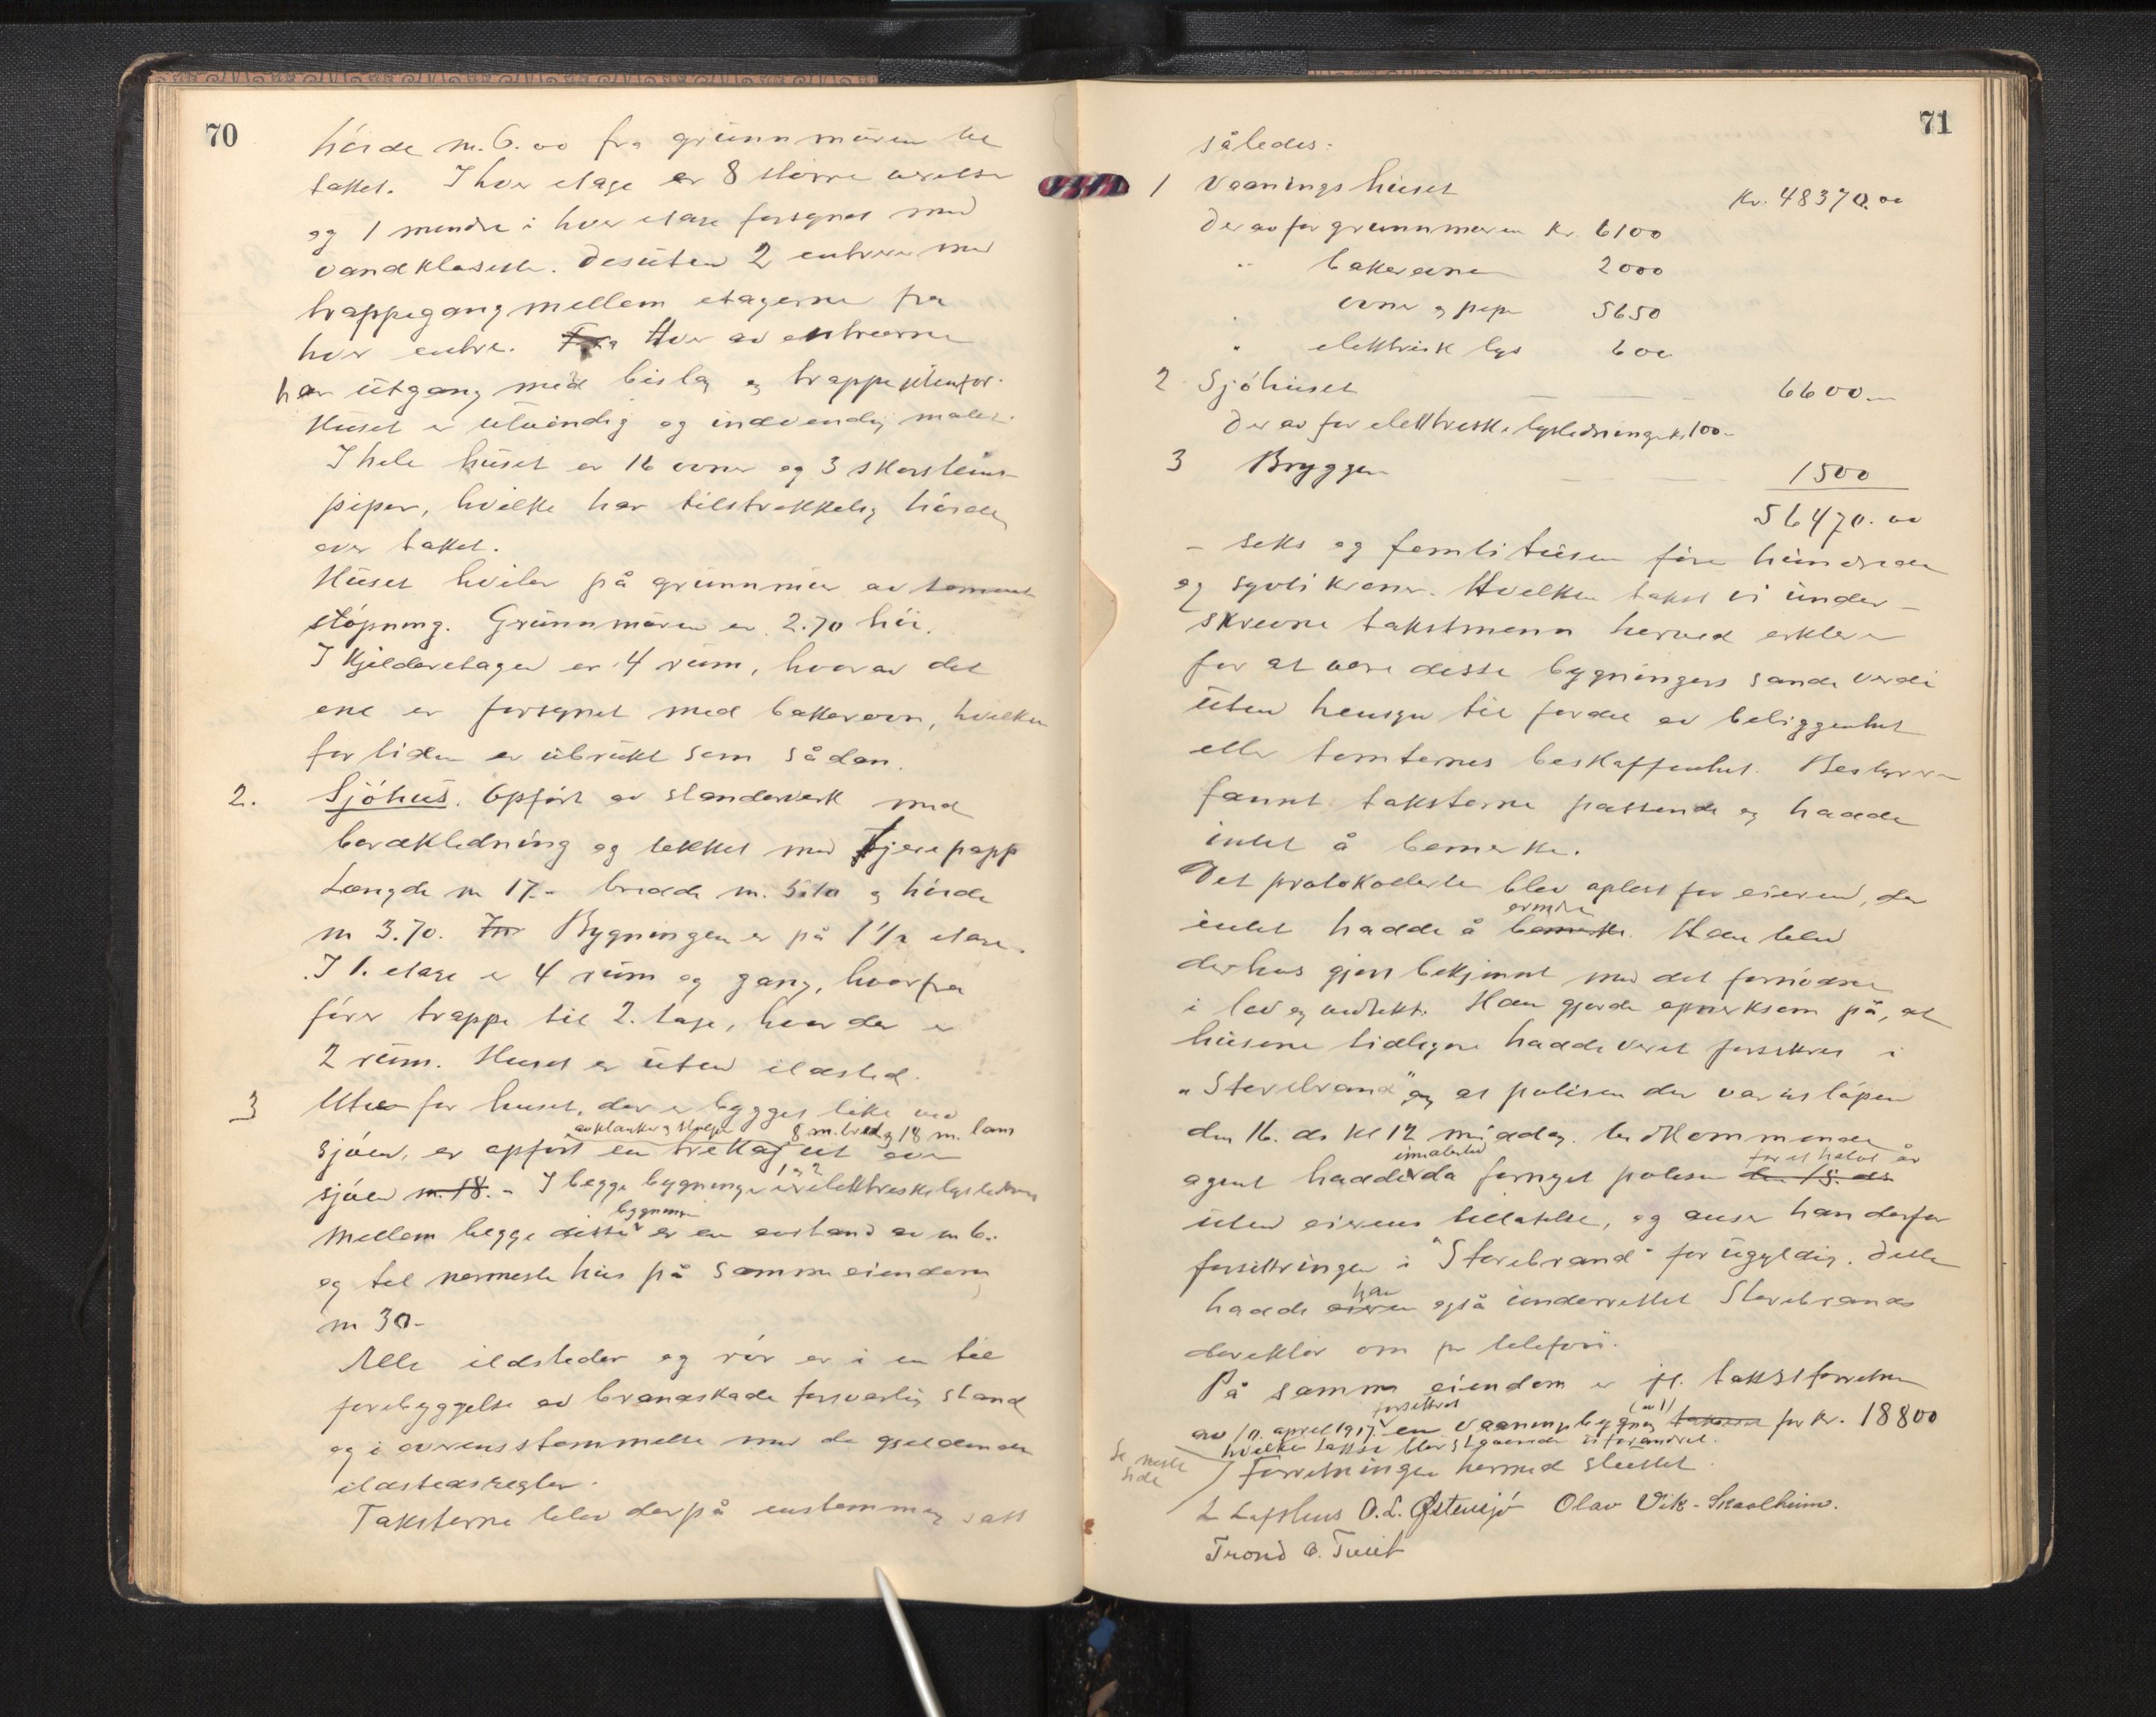 70
höide m. 6.00 fra grunnmuren til
taket. I hver etage er 8 større værelser
og 1 mindre i hver etage forsynet med
vandklosett. Desuten 2 entreer med
trappegang mellem etagerne fra
hver entre. Hver av entreerne
har utgang med bislag og trappe utenfor.
Huset er utvendig og indvendig malet.
I hele huset er 16 ovner og 3 skorsteins-
piper, hvilke har tilstrekkelig höide
over taket.
Huset hviler på grunnmur av sement
støpning. Grunnmuren er 2.70 höi.
I Kjelderetagen er 4 rum, hvorav det
ene er forsynet med bakerovn, hvilken
for tiden er ubrukt som sådan.
2. Sjöhus. Opført av standerverk med
bordkledning og tekket med tjærepapp
Længde m 17.- bredde m. 5.10 og höide
m 3.70. Bygningen er på 1 1/2 etage.
I 1. etage er 4 rum og gang, hvorfra
fører trappe til 2. etage, hvor der er
2 rum. Huset er uten ildsted.
3 Uten for huset, der er bygget like ved
av planker og stolper 8 m. bred og 18 m. lang
sjöen, er opført en trekai ut over
sjöen m. 18. - I begge bygninger 1 og 2 er elektriske lysledninger
bygninger
Mellem begge disse er en avstand av m 6.-
og til nærmeste hus på samme eiendom
m 30-
Alle ildsteder og rör er i en til
forebyggelse av brandskade forsvarlig stand
og i overensstemmelse med de gjeldende
ildstedsregler.
Taksterne blev derpå enstemmig satt
71
således:
1 Vaaningshuset Kr. 48370.00
Derav for grunnmuren Kr. 6100
" bakerovnen 2000
" ovner og piper 5650
" elektrisk lys 600
2 Sjöhuset - - - 6600.-
Derav for elektriske lysledninger kr. 100-
3 Bryggen - - - 1500
56470.00
- seks og femti tusen fire hundrede
og sytti kroner. Hvilken takst vi under-
skrevne takstmenn herved erklærer
for at være disse bygningers sande verdi
uten hensyn til fordel av beliggenhet
eller tomternes beskaffenhet. Bestyreren
fannt taksterne passende og hadde
intet å bemerke.
Det protokollerte blev oplest for eieren, der
erindre
intet hadde å bemerke. Han blev
derhos gjort bekjennt med det fornödne
i lov og vedtekt. Han gjorde opmerksom på, at
husene tidligere hadde været forsikret i
"Storebrand" og at polisen der var utløpen
den 16. ds kl 12 middag. Vedkommende
imidlertid for et halvt år
agent hadde da fornyet polisen den 15. ds
uten eierens tillatelse, og anser han derfor
forsikringen i "Storebrand" for ugyldig. Dette
han
hadde eieren også underrettet Storebrands
direktør om pr telefon.
På samme eiendom er if. takstforretning
forsikret (nr 1)
av 10. april 1917 en vaaningsbygning taksert for kr. 18800
hvilken takst blir stående uforandret.
Se neste side
Forretningen hermed sluttet.
L Lofthus O. L. Østensjö Olav Vik-Skaalheim.
Trond O. Tveit